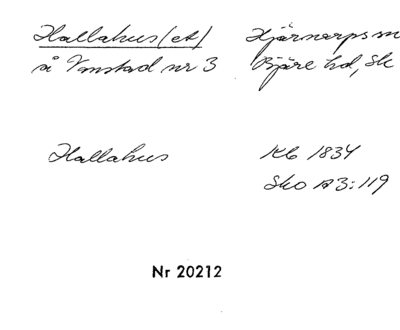 Hallahus(et) Hjärnarps sn
å Vanstad nr 3 Bjäre hd, Sk
Hallahus Kb 1834
Sko A3:119
Nr 20212